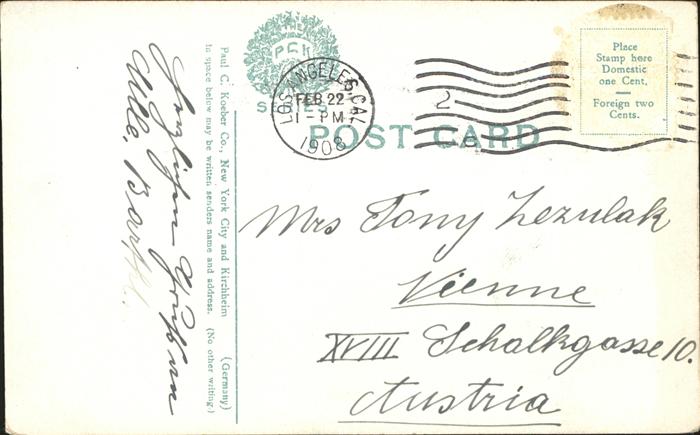 THE
PCK
SERIES
LOS ANGELES, CAL
FEB 22
1-PM
1908
2
POST CARD
Place
Stamp here
Domestic
one Cent.
Foreign two
Cents.
Paul C. Koeber Co., New York City and Kirchheim (Germany)
In space below may be written senders name and address. (No other writing.)
Mrs Tony Zezulak
Vienne
XVIII Schalkgasse 10.
Austria